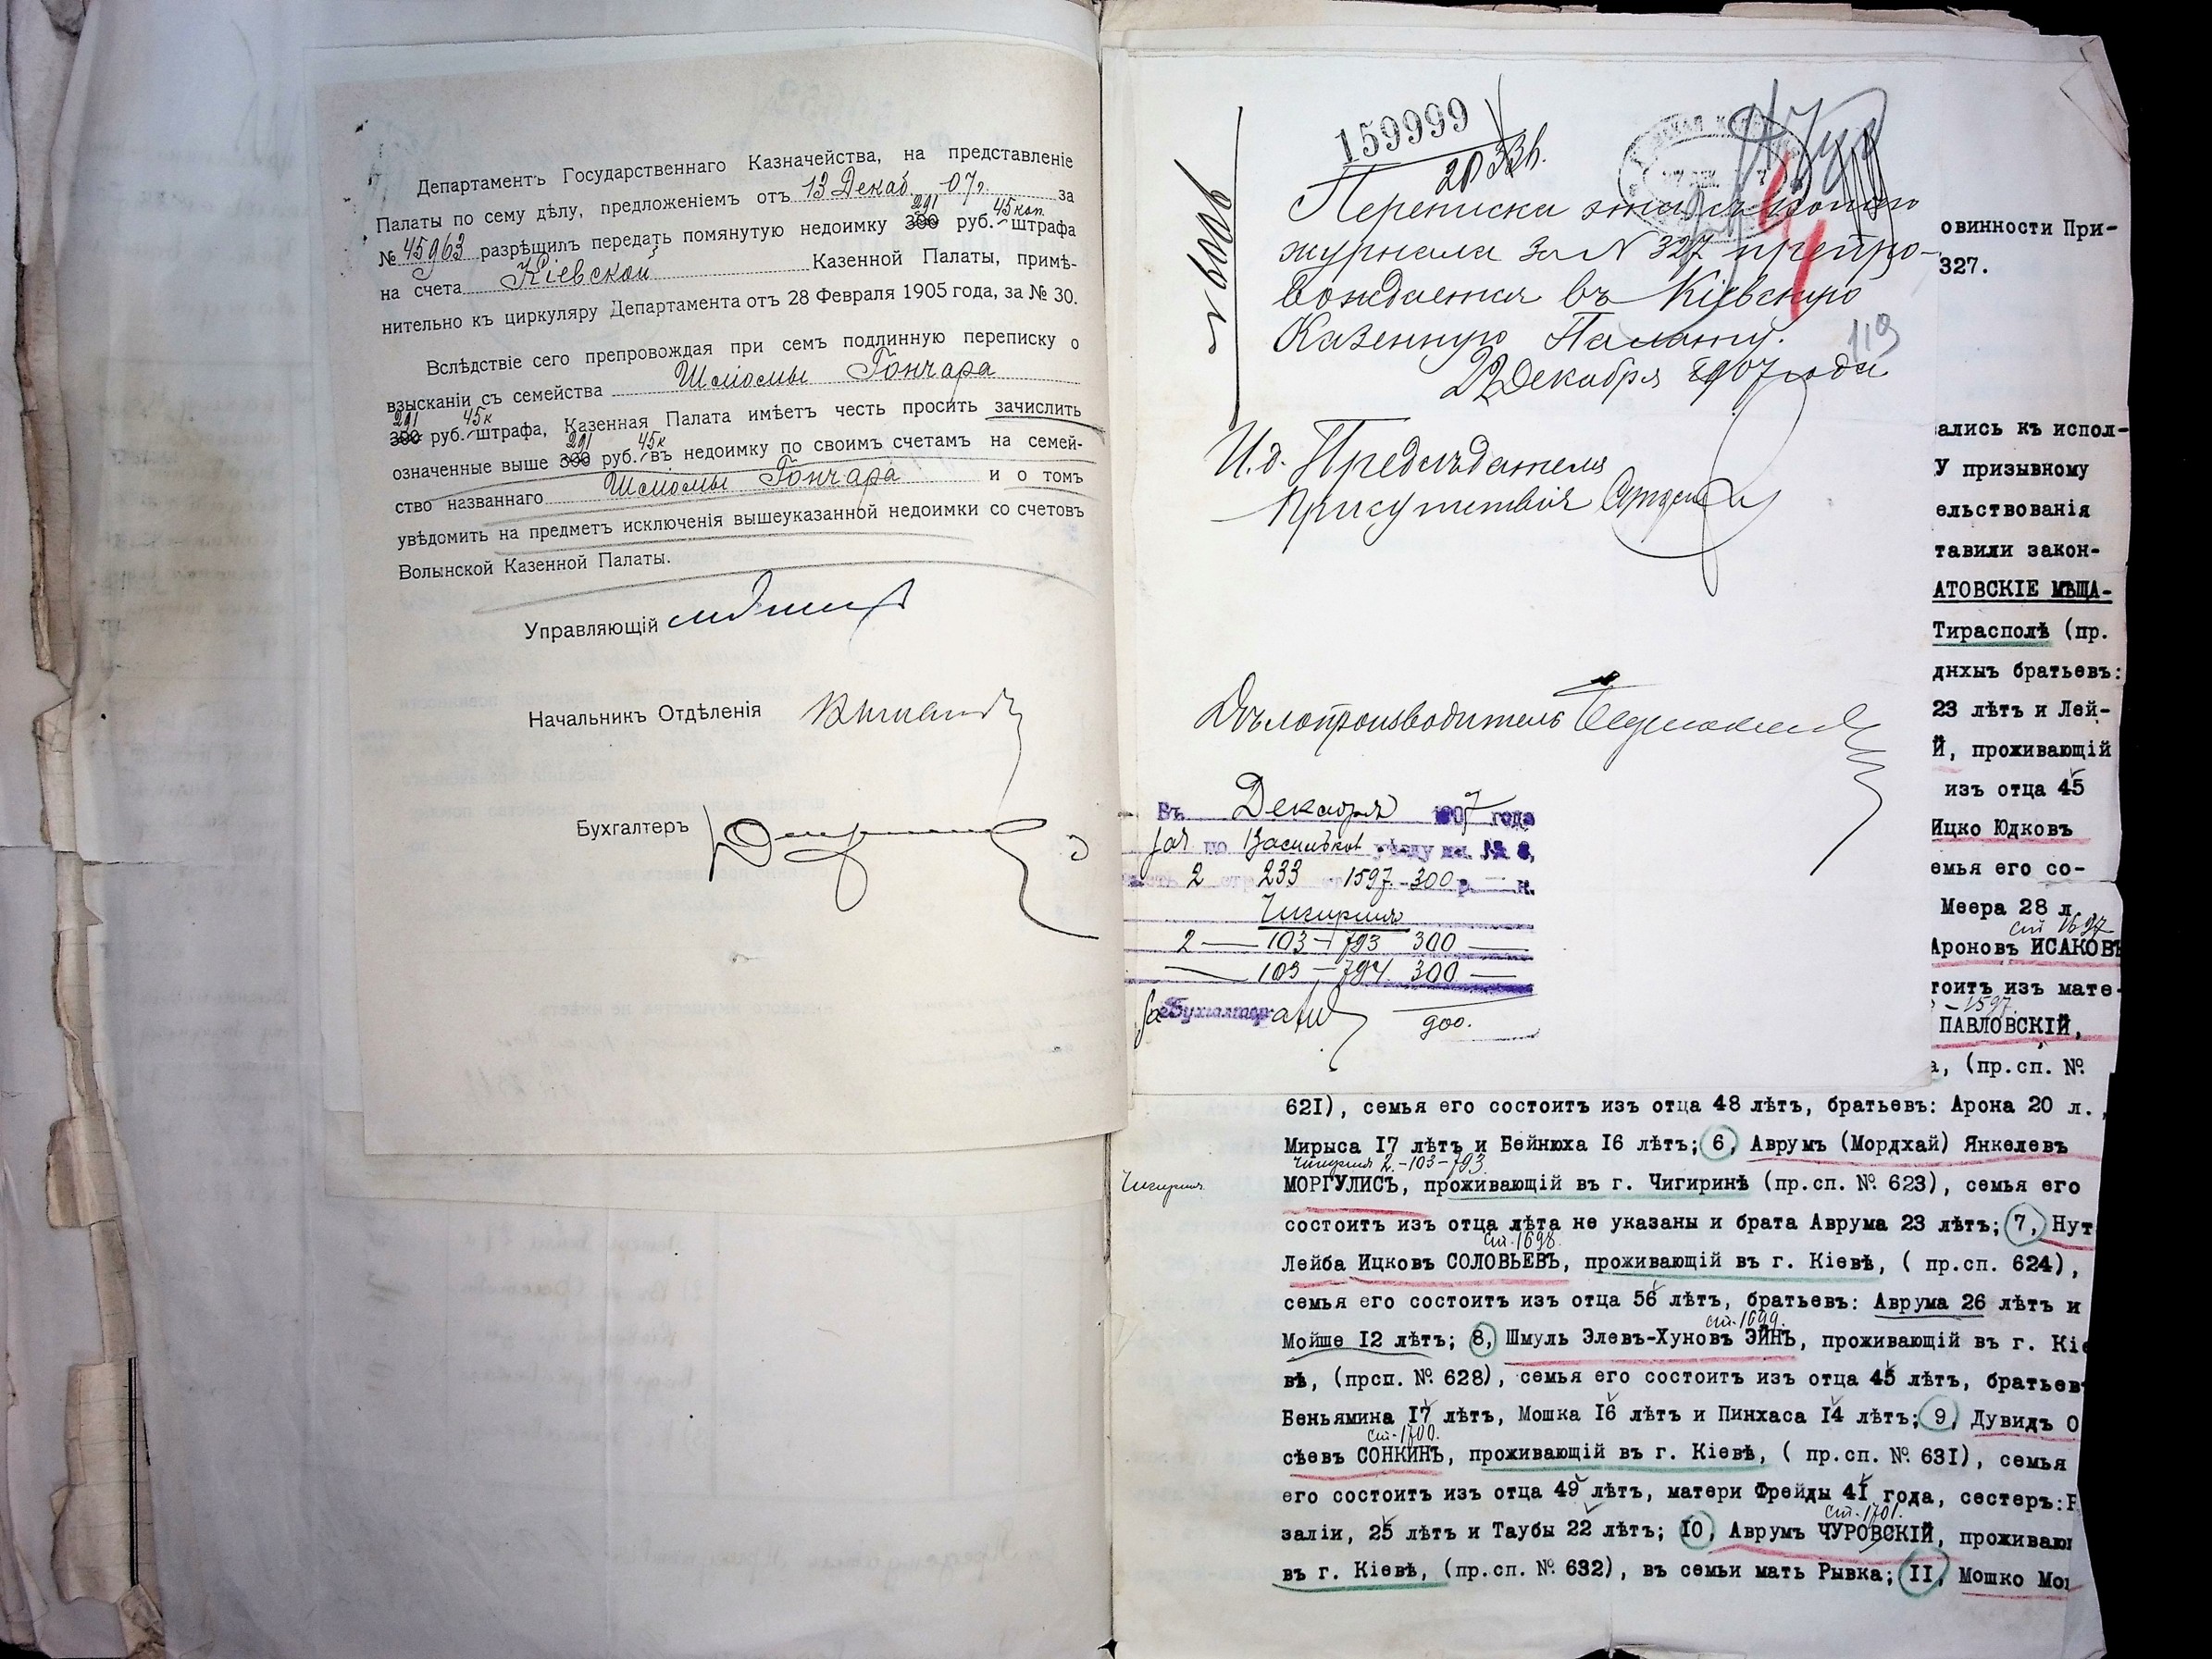 Департаментъ Государственнаго Казначейства, на представленіе
Палаты по сему дѣлу, предложеніемъ отъ 13 Декаб. 07 г. за
№ 45963 разрѣшилъ передать помянутую недоимку 300 291 руб. 45 коп. штрафа
на счета Кіевской Казенной Палаты, примѣ-
нительно къ циркуляру Департамента отъ 28 Февраля 1905 года, за № 30.
Вслѣдствіе сего препровождая при семъ подлинную переписку о
взысканіи съ семейства Шліомы Гончара
300 291 руб. 45 к штрафа, Казенная Палата имѣетъ честь просить зачислить
означенные выше 300 291 руб. 45 к въ недоимку по своимъ счетамъ на семей-
ство названнаго Шліомы Гончара и о томъ
увѣдомить на предметъ исключенія вышеуказанной недоимки со счетовъ
Волынской Казенной Палаты.
Управляющій
Начальникъ Отдѣленія
Бухгалтеръ
159999
Переписка эта съ копіею
журнала за N 327 препро-
вождается въ Кіевскую
Казенную Палату.
119
22 Декабря 1907 года
И.д. Предсѣдателя
Присутствія
Дѣлопроизводитель
Въ Декабря 1907 года
по Васильков. уѣзду кн. № 8,
2 стр. 233 ст. 1597 - 300 р. — к.
Чигиринъ
2 — 103 — 793 300 —
— 103 — 794. 300 —
за Бухгалтер
900.
овинности При-
327.
ались къ испол-
У призывному
ельствованія
тавили закон-
АТОВСКІЕ МѢЩА-
Тирасполѣ (пр.
днхыъ братьевъ:
23 лѣтъ и Лей-
Й, проживающій
изъ отца 45
Ицко Юдковъ
емья его со-
Меера 28 л.
ст 1697
Ароновъ ИСАКОВЪ
тоитъ изъ мате-
– 1597.
ПАВЛОВСКІЙ,
а, (пр.сп. №
621), семья его состоитъ изъ отца 48 лѣтъ, братьевъ: Арона 20 л.,
Мирыса 17 лѣтъ и Бейнюха 16 лѣтъ; 6, Аврумъ (Мордхай) Янкелевъ
Чигиринъ 2.-103-793.
Чигирин.
МОРГУЛИСЪ, проживающій въ г. Чигиринѣ (пр.сп. № 623), семья его
состоитъ изъ отца лѣта не указаны и брата Аврума 23 лѣтъ; 7, Нут
ст. 1698.
Лейба Ицковъ СОЛОВЬЕВЪ, проживающій въ г. Кіевѣ, ( пр.сп. 624),
семья его состоитъ изъ отца 56 лѣтъ, братьевъ: Аврума 26 лѣтъ и
ст. 1699.
Мойше 12 лѣтъ; 8, Шмуль Элевъ-Хуновъ ЭЙНЪ, проживающій въ г. Кіе
вѣ, (прсп. № 628), семья его состоитъ изъ отца 45 лѣтъ, братьевъ
Беньямина 17 лѣтъ, Мошка 16 лѣтъ и Пинхаса 14 лѣтъ; 9, Дувидъ О
ст. 1700.
сѣевъ СОНКИНЪ, проживающій въ г. Кіевѣ, ( пр.сп. № 631), семья
его состоитъ изъ отца 49 лѣтъ, матери Фрейды 41 года, сестеръ: Р
ст. 1701.
заліи, 25 лѣтъ и Таубы 22 лѣтъ; 10, Аврумъ ЧУРОВСКІЙ, проживаю
въ г. Кіевѣ, (пр.сп. № 632), въ семьи мать Рывка; 11, Мошко Мо